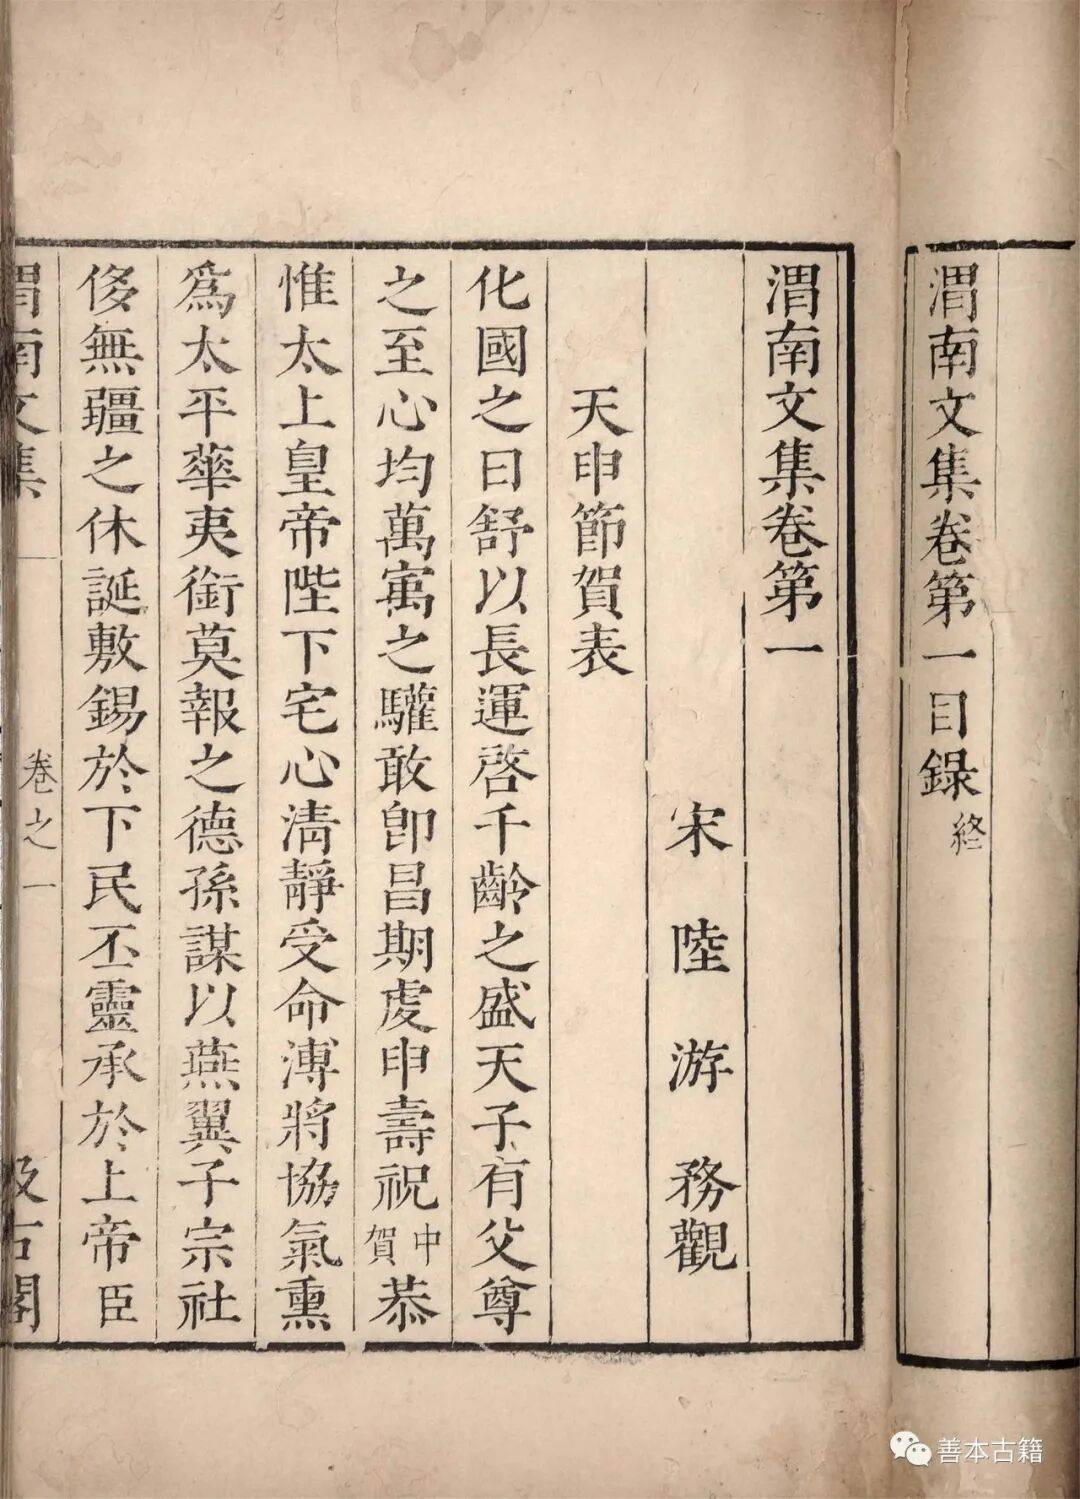 渭南文集卷第一目錄終
渭南文集卷第一
宋陸游務觀
天申節賀表
化國之日舒以長運啓千齡之盛天子有父尊
之至心均萬寓之驩敢卽昌期虔申壽祝中賀恭
惟太上皇帝陛下宅心清靜受命溥將協氣熏
爲太平華夷銜莫報之德孫謀以燕翼子宗社
侈無疆之休誕敷錫於下民丕靈承於上帝臣
渭南文集
卷之一
汲古閣
善本古籍